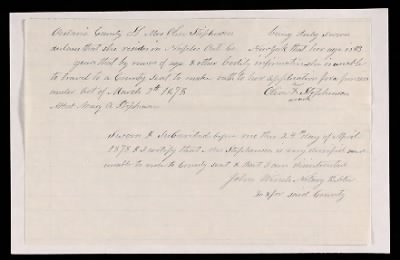 Ontario County SS Mrs Olive Stephenson being duly sworn
declares that she resides in Naples Ont Co. New York that her age is 83
years that by reason of age & other bodily infirmities she is unable
to travel to a County seat to make oath to her application for a pension
under Act of March 9th 1878 Olive X Stephenson
mark
Attest Mary A Stephenson
Sworn & Subscribed before me this 24th day of April
1878 & I certify that Mrs Stephenson is very decrepid and
unable to ride to County seat & that I am disinterested
John Notary Public
in & for said County